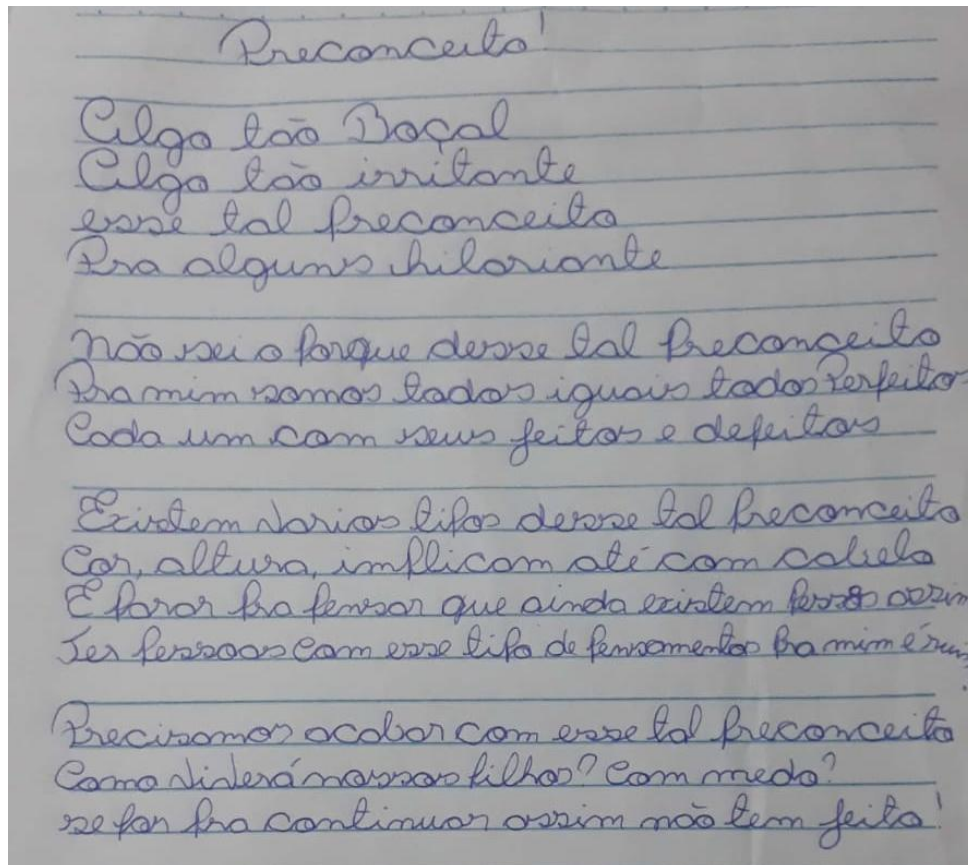 Preconceito!
Algo tão Boçal
Algo tão irritante
esse tal preconceito
Pra alguns hilariante
Não sei o porque desse tal preconceito
Pra mim somos todos iguais todos Perfeitos
Cada um com seus feitos e defeitos
Existem varios tipos desse tal preconceito
Cor, altura, implicam até com cabelo
É parar pra pensar que ainda existem assim
Ter pessoas com esse tipo de pensamentos pra mim é ruim
Precisamos acabar com esse tal preconceito
Como viverá nossos filhos? Com medo?
se for pra continuar assim não tem jeito!